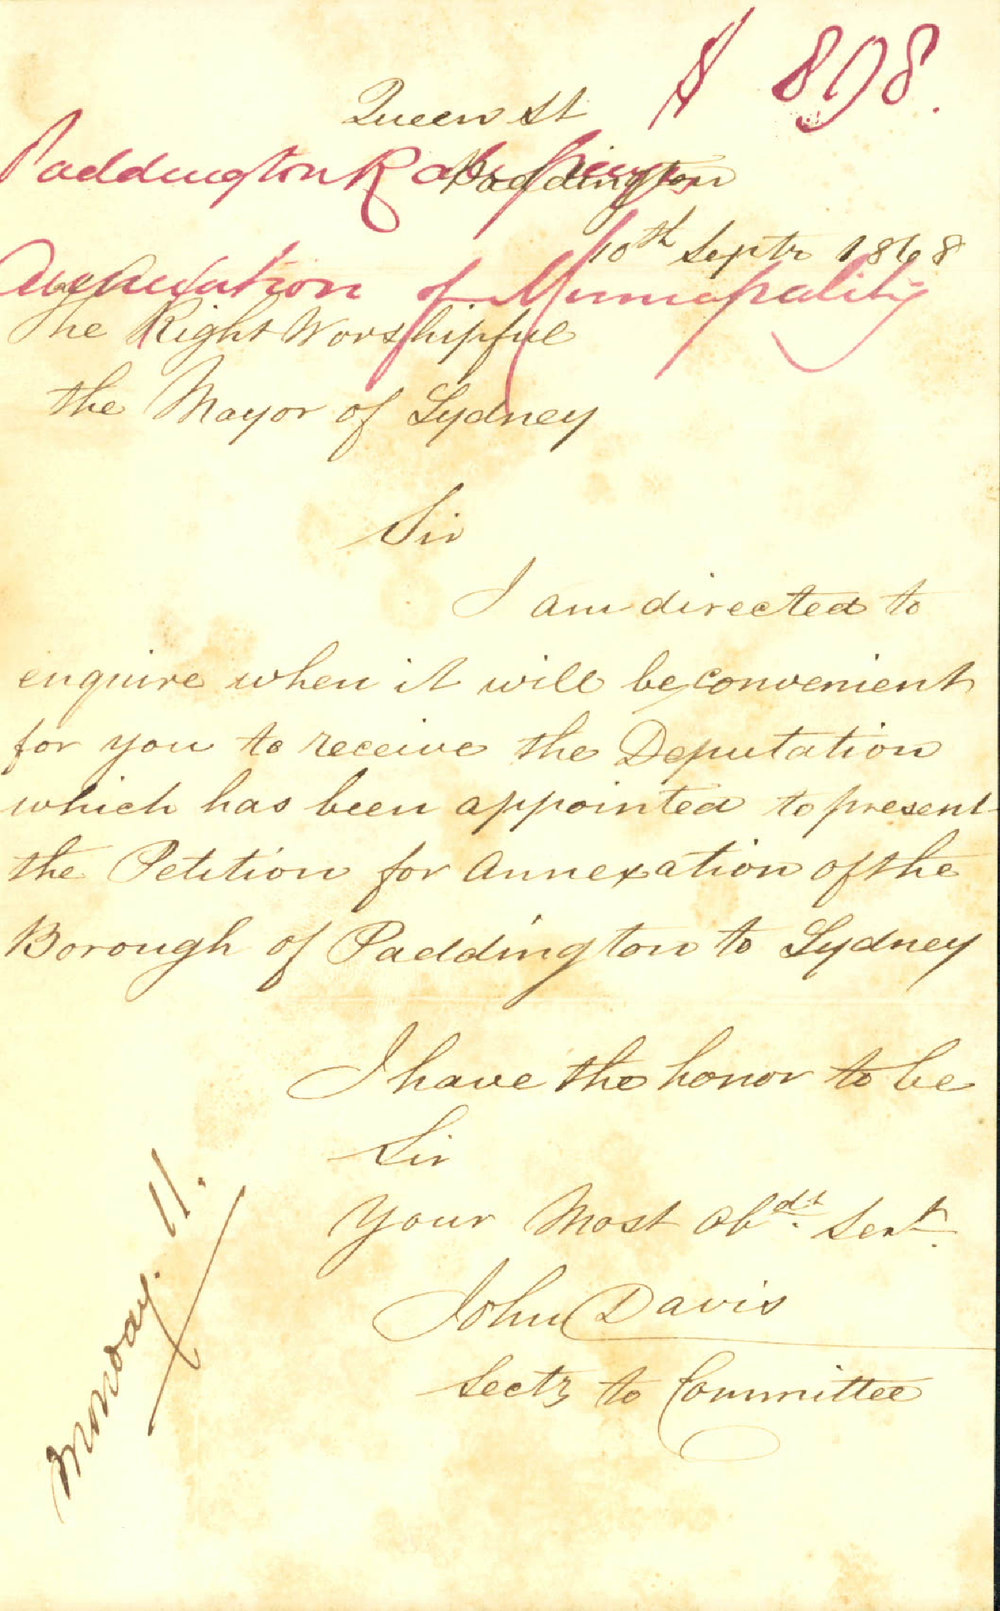 898.
Queen St
Paddington Ratepayers
Paddington
10th Septr 1868
Annexation of Municipality
The Right Worshipful
the Mayor of Sydney
Sir
I am directed to
enquire when it will be convenient
for you to receive the Deputation
which has been appointed to present
the Petition for Annexation of the
Borough of Paddington to Sydney
I have the honor to be
Sir
Your Most Obdt. Servt.
John Davis
Secty to Committee
Monday. 11.